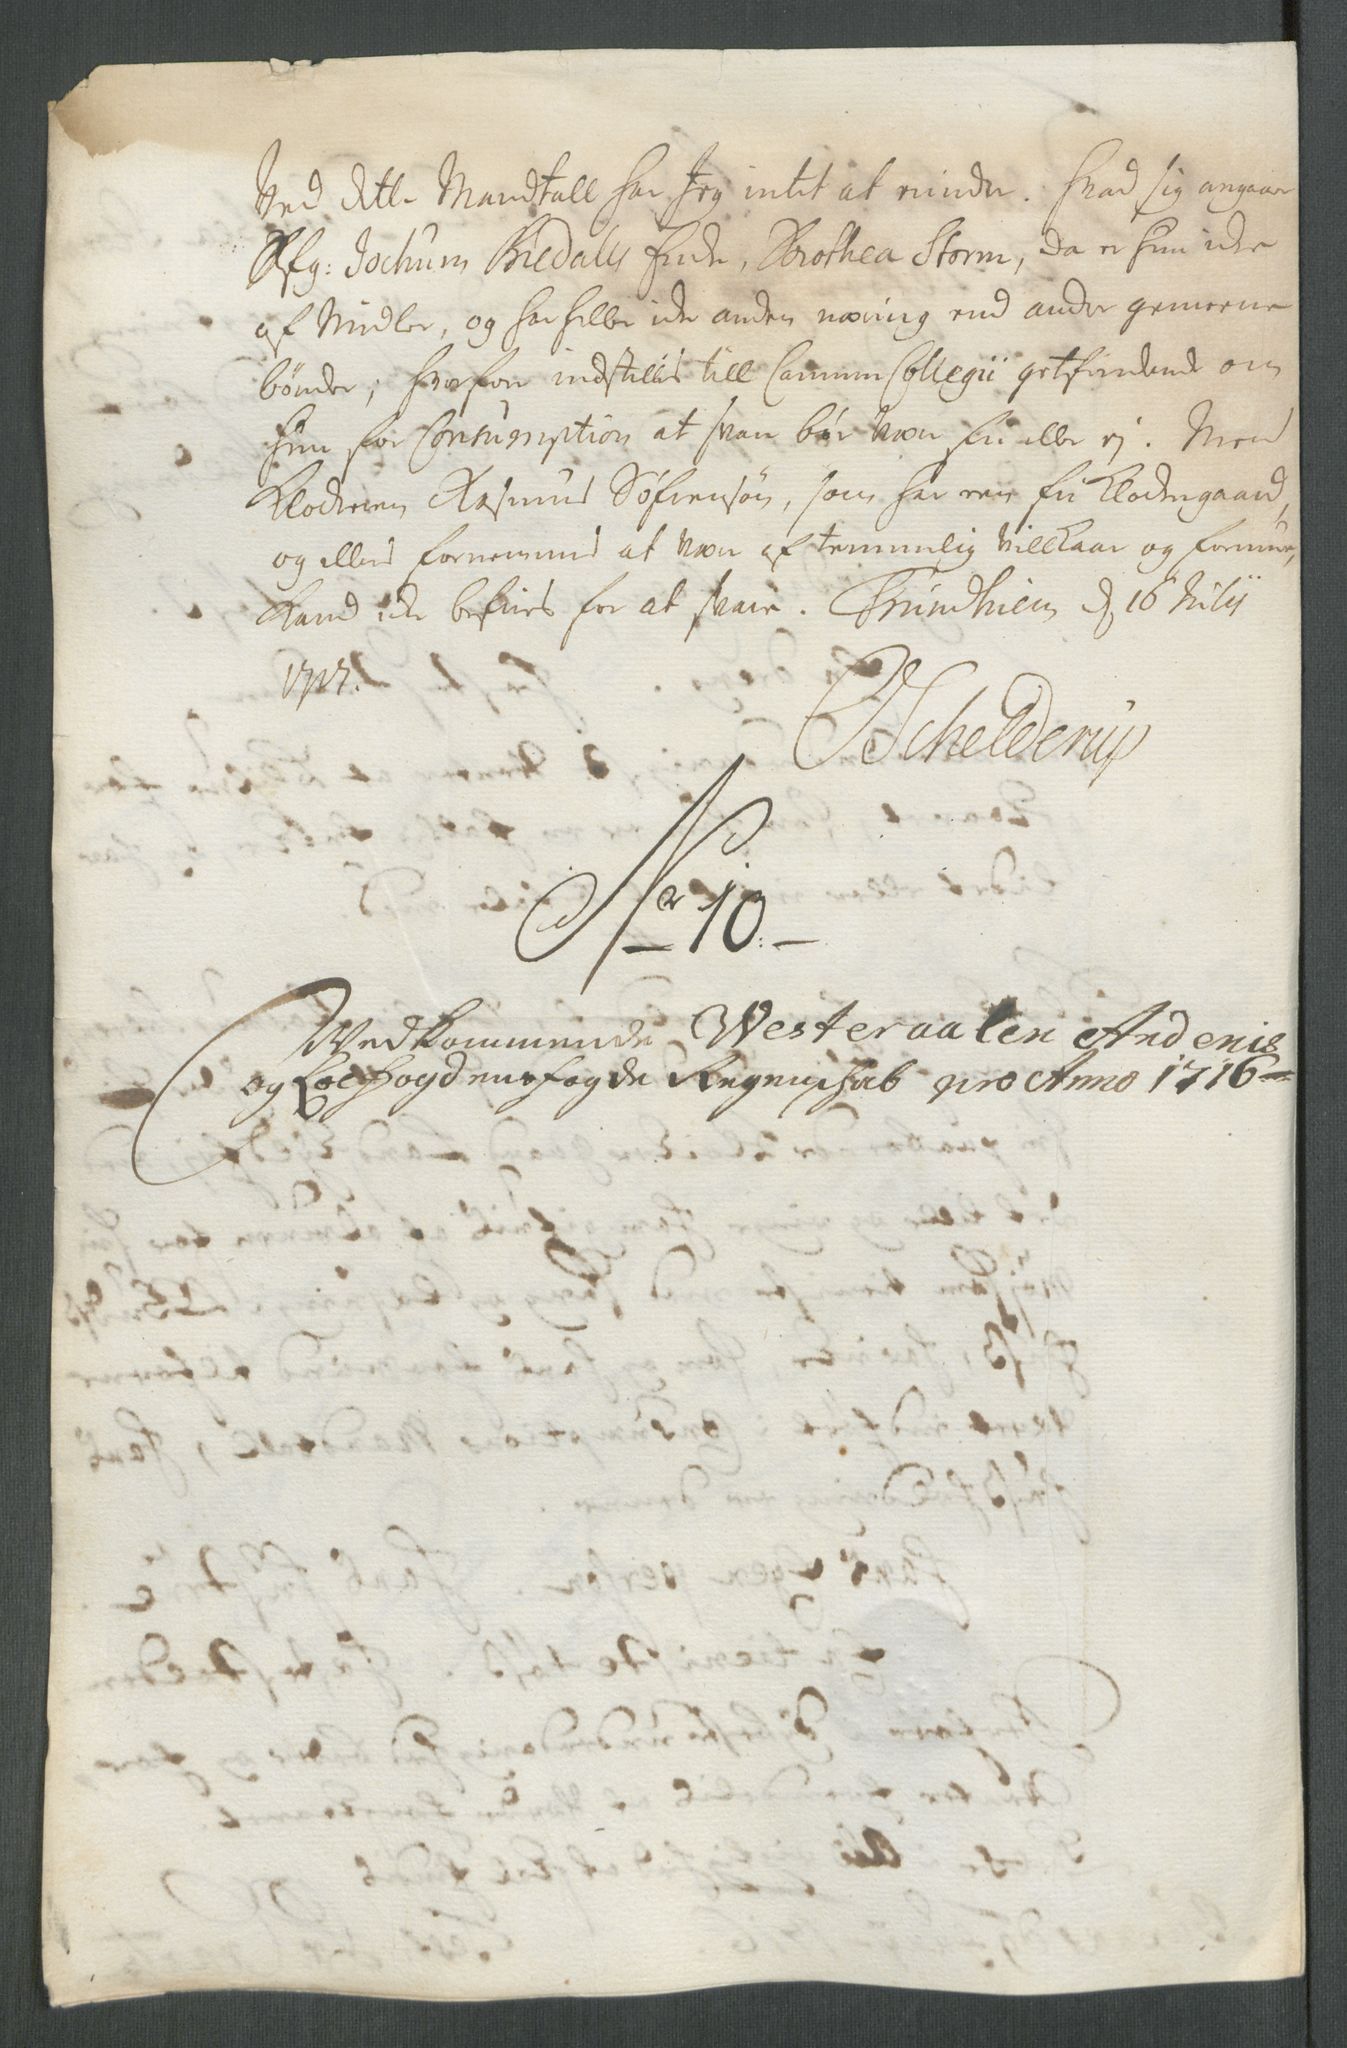 Ved dette Mandtall har Jeg intet at minde. Hvad sig angaar
Sl. Jochum Bredals Encke, Dorothea Storm, da er hun icke
af Midler, og har heller icke anden næring end andre gemeene
bønder; hvorfor indstilles till Cammer Collegii gotfindende om
hun for Consumption at svare bør være fri eller ej. Men
Klockeren Rasmus Søfrensøn, som har een fri Klockergaard,
og ellers fornemmes at være af temmelig Villkaar og formue,
Kand icke befries for at svare. Trundhiem d. 16 Julij
1717.
Schelderup
No 10.
Vedkommende Westeraalen Andenis
og Fogde Regenskab pro Anno 1716